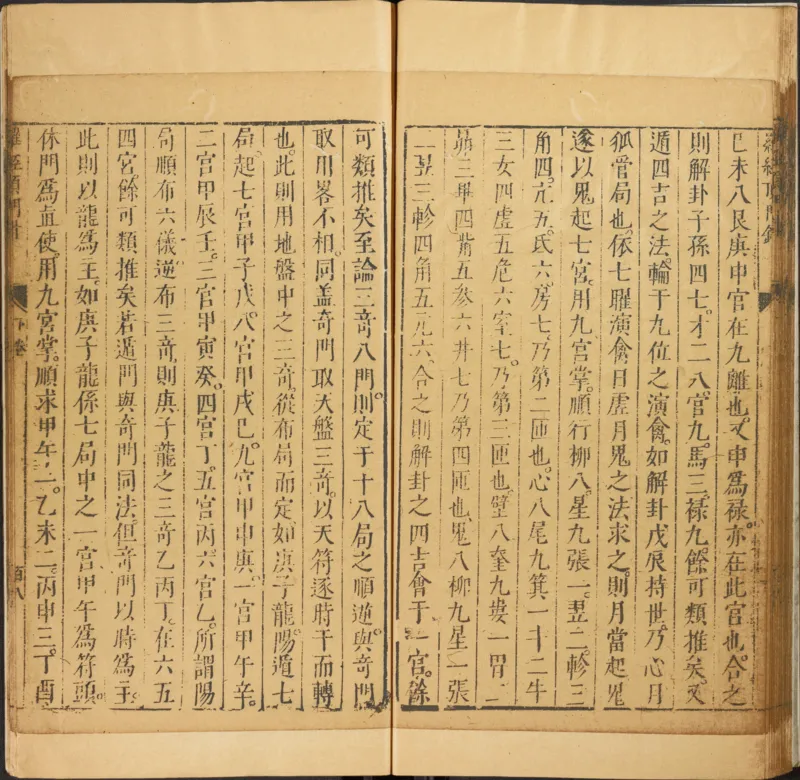 巳未八艮庚申官在九離也又申爲祿亦在此官也合之
則解卦子孫四七才二八官九馬三祿九餘可類推矣又
遁四吉之法輪于九位之演禽如解卦戊辰持世乃心月
狐管局也依七曜演禽日虛月鬼之法求之則月當起鬼
遂以鬼起七宮用九宮掌順行柳八星九張一翌二軫三
角四亢五氐六房七乃第二匝也心八尾九箕一斗二牛
三女四虛五危六室七乃第三匝也壁八奎九婁一胃二
昴三畢四觜五參六井七乃第四匝也鬼八柳九星一張
二翌三軫四角五亢六合之則解卦之四吉會于一宮餘
可類推矣至論三奇八門則定于十八局之順逆與奇門
取用畧不相同盖奇門取天盤三奇以天符逐時干而轉
也此則用地盤中之三奇從布局而定如庚子龍陽遁七
局起七宮甲子戊八官甲戌巳九宮甲申庚一宮甲午辛
二宮甲辰壬三宮甲寅癸四宮丁五宮丙六宮乙所謂陽
局順布六儀逆布三奇則庚子龍之三奇乙丙丁在六五
四宮餘可類推矣若遁門與奇門同法但奇門以時爲主
此則以龍爲王如庚子龍係七局中之一宮甲午爲符頭
休門爲直使用九宮掌順求甲午一乙未二丙申三丁酉
下卷
百八